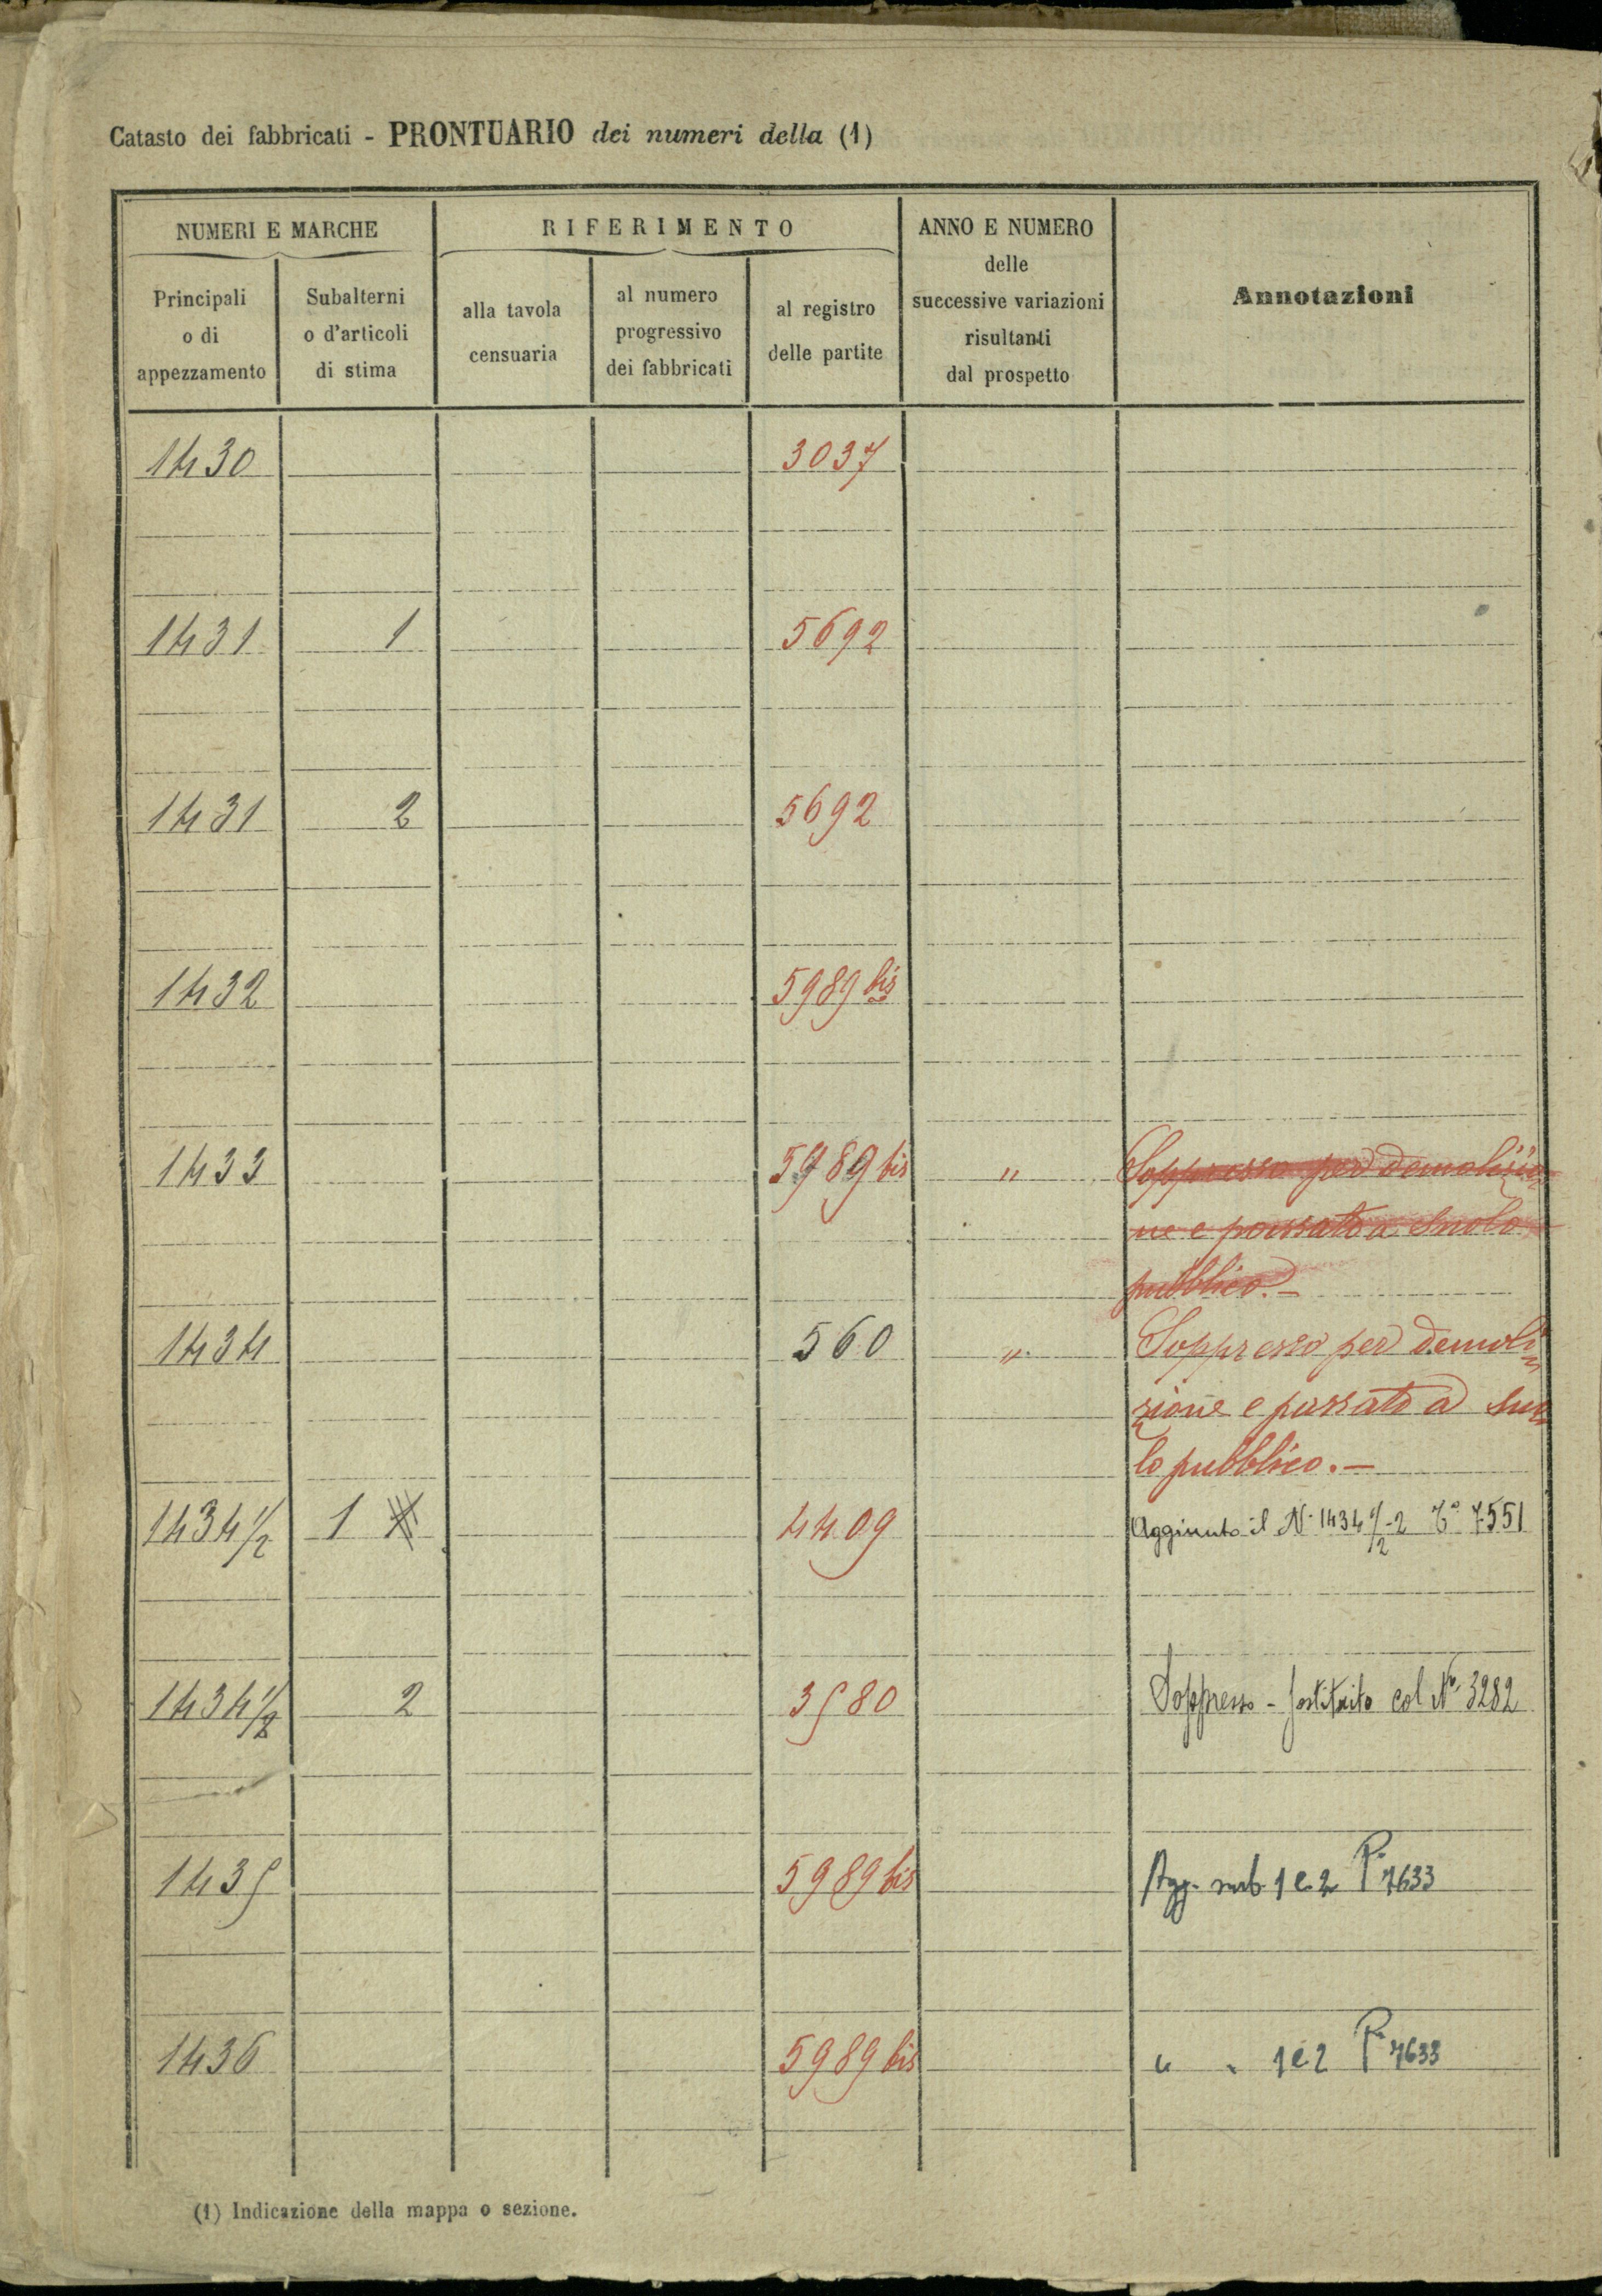 Catasto dei fabbricati - PRONTUARIO dei numeri della (1)
NUMERI E MARCHE
RIFERIMENTO
ANNO E NUMERO
delle
successive variazioni
risultanti
dal prospetto
Annotazioni
Principali
o di
appezzamento
Subalterni
o d'articoli
di stima
alla tavola
censuaria
al numero
progressivo
dei fabbricati
al registro
delle partite
1430 3037
1431 1 5692
1431 2 5692
1432 5989 bis
1433 5989 bis " Soppresso per demolizio
ne e passato a suolo
pubblico.-
1434 560 " Soppresso per demoli
zione e passato a suo
lo pubblico.-
1434 1/2 1 4409 Aggiunto il N. 1434 1/2-2 7551
1434 1/2 2 3580 Soppresso - sostituito col N° 3282
1435 5989 bis Agg. sub. 1 e 2 P. 7633
1436 5989 bis " " 1 e 2 P. 7633
(1) Indicazione della mappa o sezione.